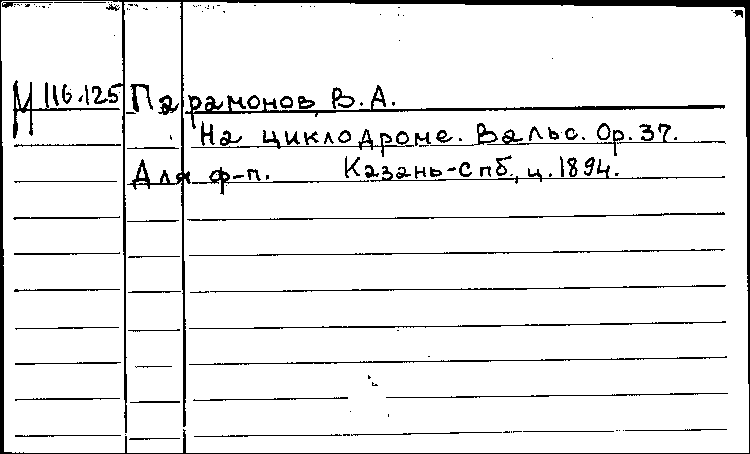 М 116.125 Парамонов, В. А.
На циклодроме. Вальс. Ор. 37.
Для ф-п. Казань-Спб, ц. 1894.